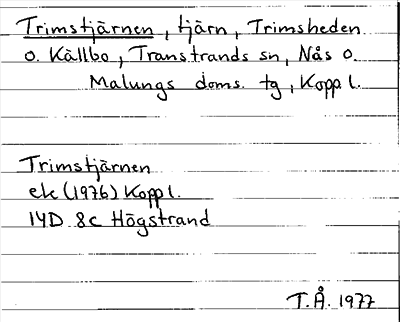 Trimstjärnen, tjärn, Trimsheden
o. Källbo, Transtrands sn, Nås o.
Malungs doms. tg, Kopp l.
Trimstjärnen
ek (1976) Kopp l.
14D 8c Högstrand
T.Å. 1977